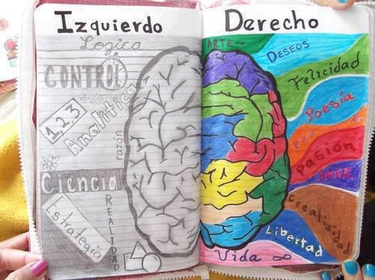 Izquierdo
Logica
CONTROL
1,2,3
Analítico
razón
Ciencia
Estrategia
REALIDAD
Derecho
ARTE~
DESEOS
Felicidad
Poesía
Pasión
Creatividad
Libertad
Vida ∞